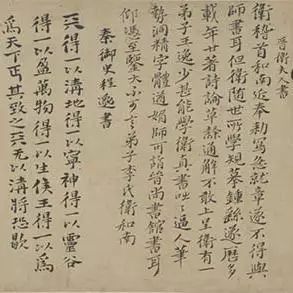 晋衛夫人書
衛稽首和南近奉勅寫急就章遂不得與
師書耳但衛随世所學規摹鍾繇遂歷多
載年廿著詩論草隸通解不敢上呈衛有一
弟子王逸少甚能學衛真書咄咄逼人筆
勢洞精字體遒媚師可詣晉尚書館書耳
仰馮至鑒大不可言弟子李氏衛和南
秦御史程邈書
天得一以清地得一以寧神得一以靈谷
得一以盈萬物得一以生侯王得一以為
爲天下正其致之天无以清將恐歇